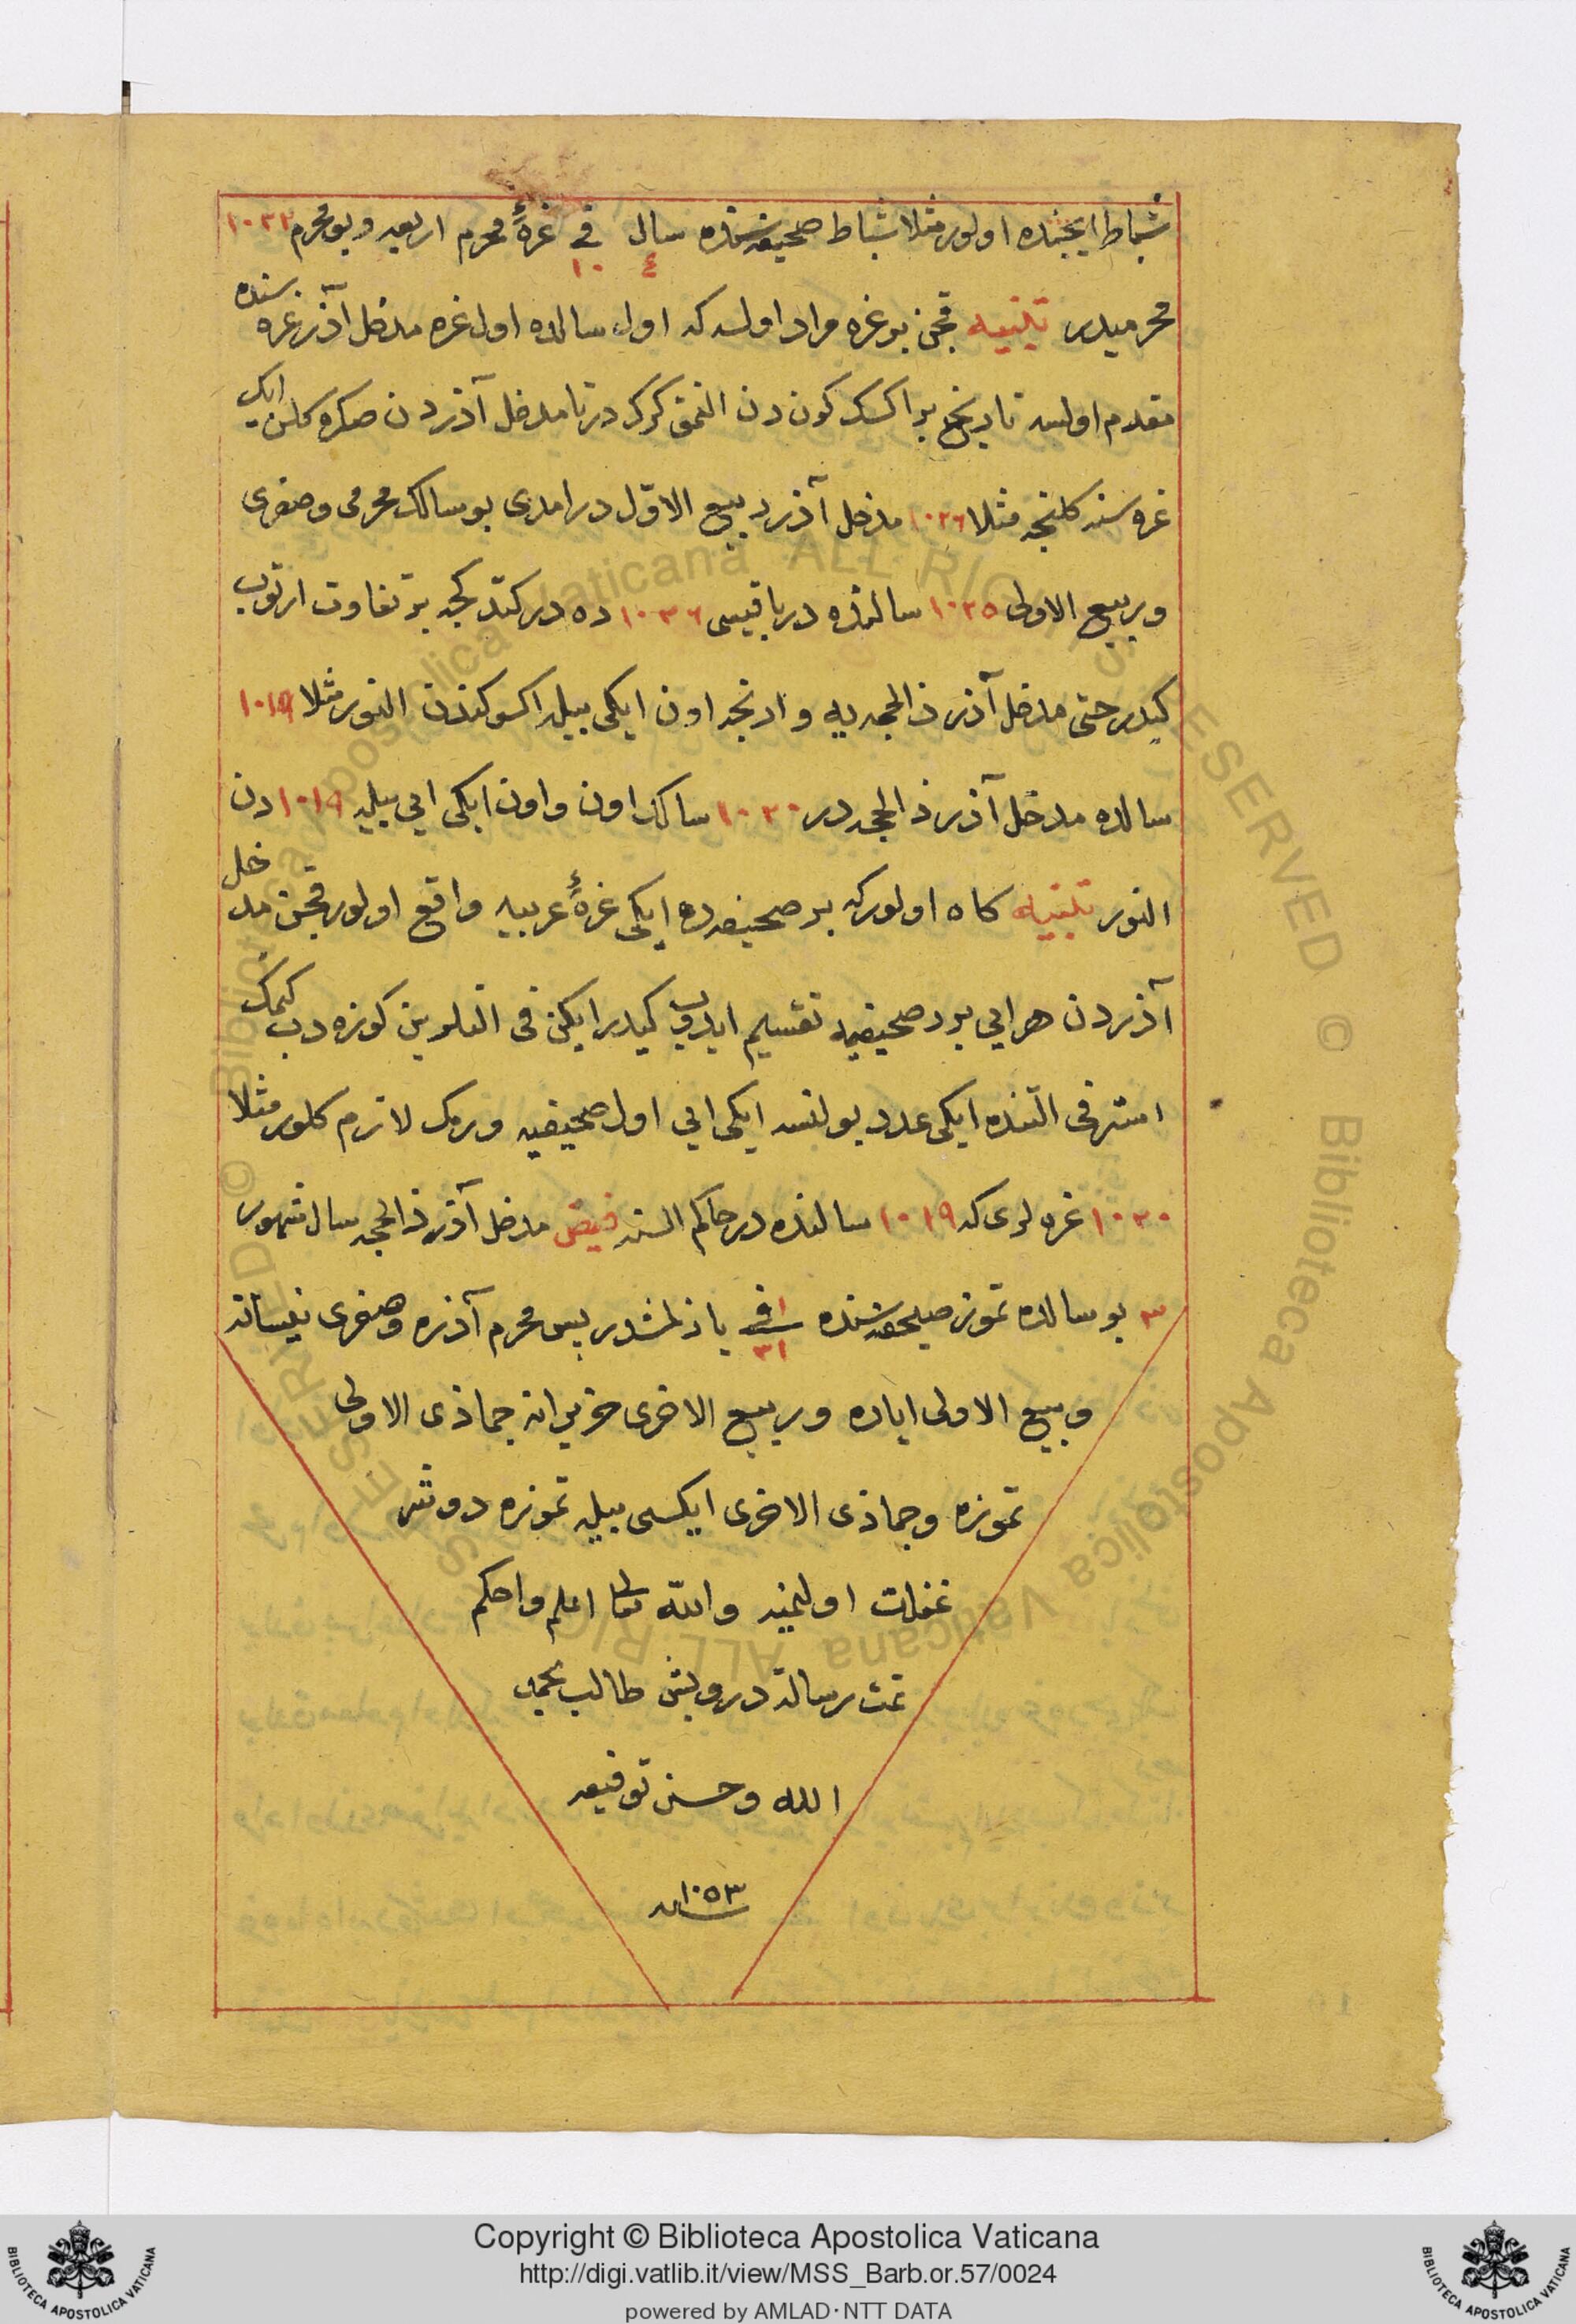 شباط ایچنده اولور مثلا شباط صحیفه‌سنده سال ٤ فی ١٠ غرهٔ محرم اربعه و بو محرم ١٠٣٢
محرمیدر تلنبیه قچن بو غره مراد اولسه که اول سالده اول غره مدخل آذر غره سنده
مقدم اولسه تاریخ بر اکسک کون دن النمق کرکدر تا مدخل آذردن صکره کلن ایک
غره سنه کلنجه مثلا ١٠٣٦ مدخل آذر ربیع الاوّل در امدی بو سالک محرمی و صفری
و ربیع الاولی ١٠٣٥ سالنده در باقیسی ١٠٣٦ ده در کتدکجه بر تفاوت ارتوب
کیدر حتی مدخل آذر ذالحجه یه وارنجه اون ایکی بیله اکسوکندن النور مثلا ١٠١٩
سالده مدخل آذر ذالحجه در ١٠٢٠ سالک اون و اون ایکی ایی بیله ١٠١٩ دن
النور تلنبیه کاه اولور که بر صحیفه ده ایکی غرهٔ عربیه واقع اولور قچن مدخل
آذردن هر ایی بر صحیفه یه تقسیم ایدوب کیدر ایکن فی التلوین کوزه دب کیمک
استر فی التنده ایکی عدد بولنسه ایکی ایی اول صحیفیه ورمک لازم کلور مثلا
١٠٢٠ غره لری که ١٠١٩ سالنده در حاکم السنه فیض مدخل آذر ذالحجه سال شهور
٣ بو سالده تموز صحیفه‌سنده ١ فی ٣١ یازلمشدر پس محرم آذره و صفری نیسانه
ربیع الاولی ایاره و ربیع الاخری حزیرانه جماذی الاولی
تموزه و جماذی الاخری ایکسی بیله تموزه دوشر
غفلت اولنمیه والله تعالی اعلم واحکم
تمت رسالة درویش طالب بحمد
الله وحسن توفیقه
سنه ١٠٥٣
Copyright © Biblioteca Apostolica Vaticana
http://digi.vatlib.it/view/MSS_Barb.or.57/0024
powered by AMLAD·NTT DATA
BIBLIOTECA APOSTOLICA VATICANA
BIBLIOTECA APOSTOLICA VATICANA
© Biblioteca Apostolica Vaticana ALL RIGHTS RESERVED © Biblioteca Apostolica Vaticana ALL RIGHTS RESERVED